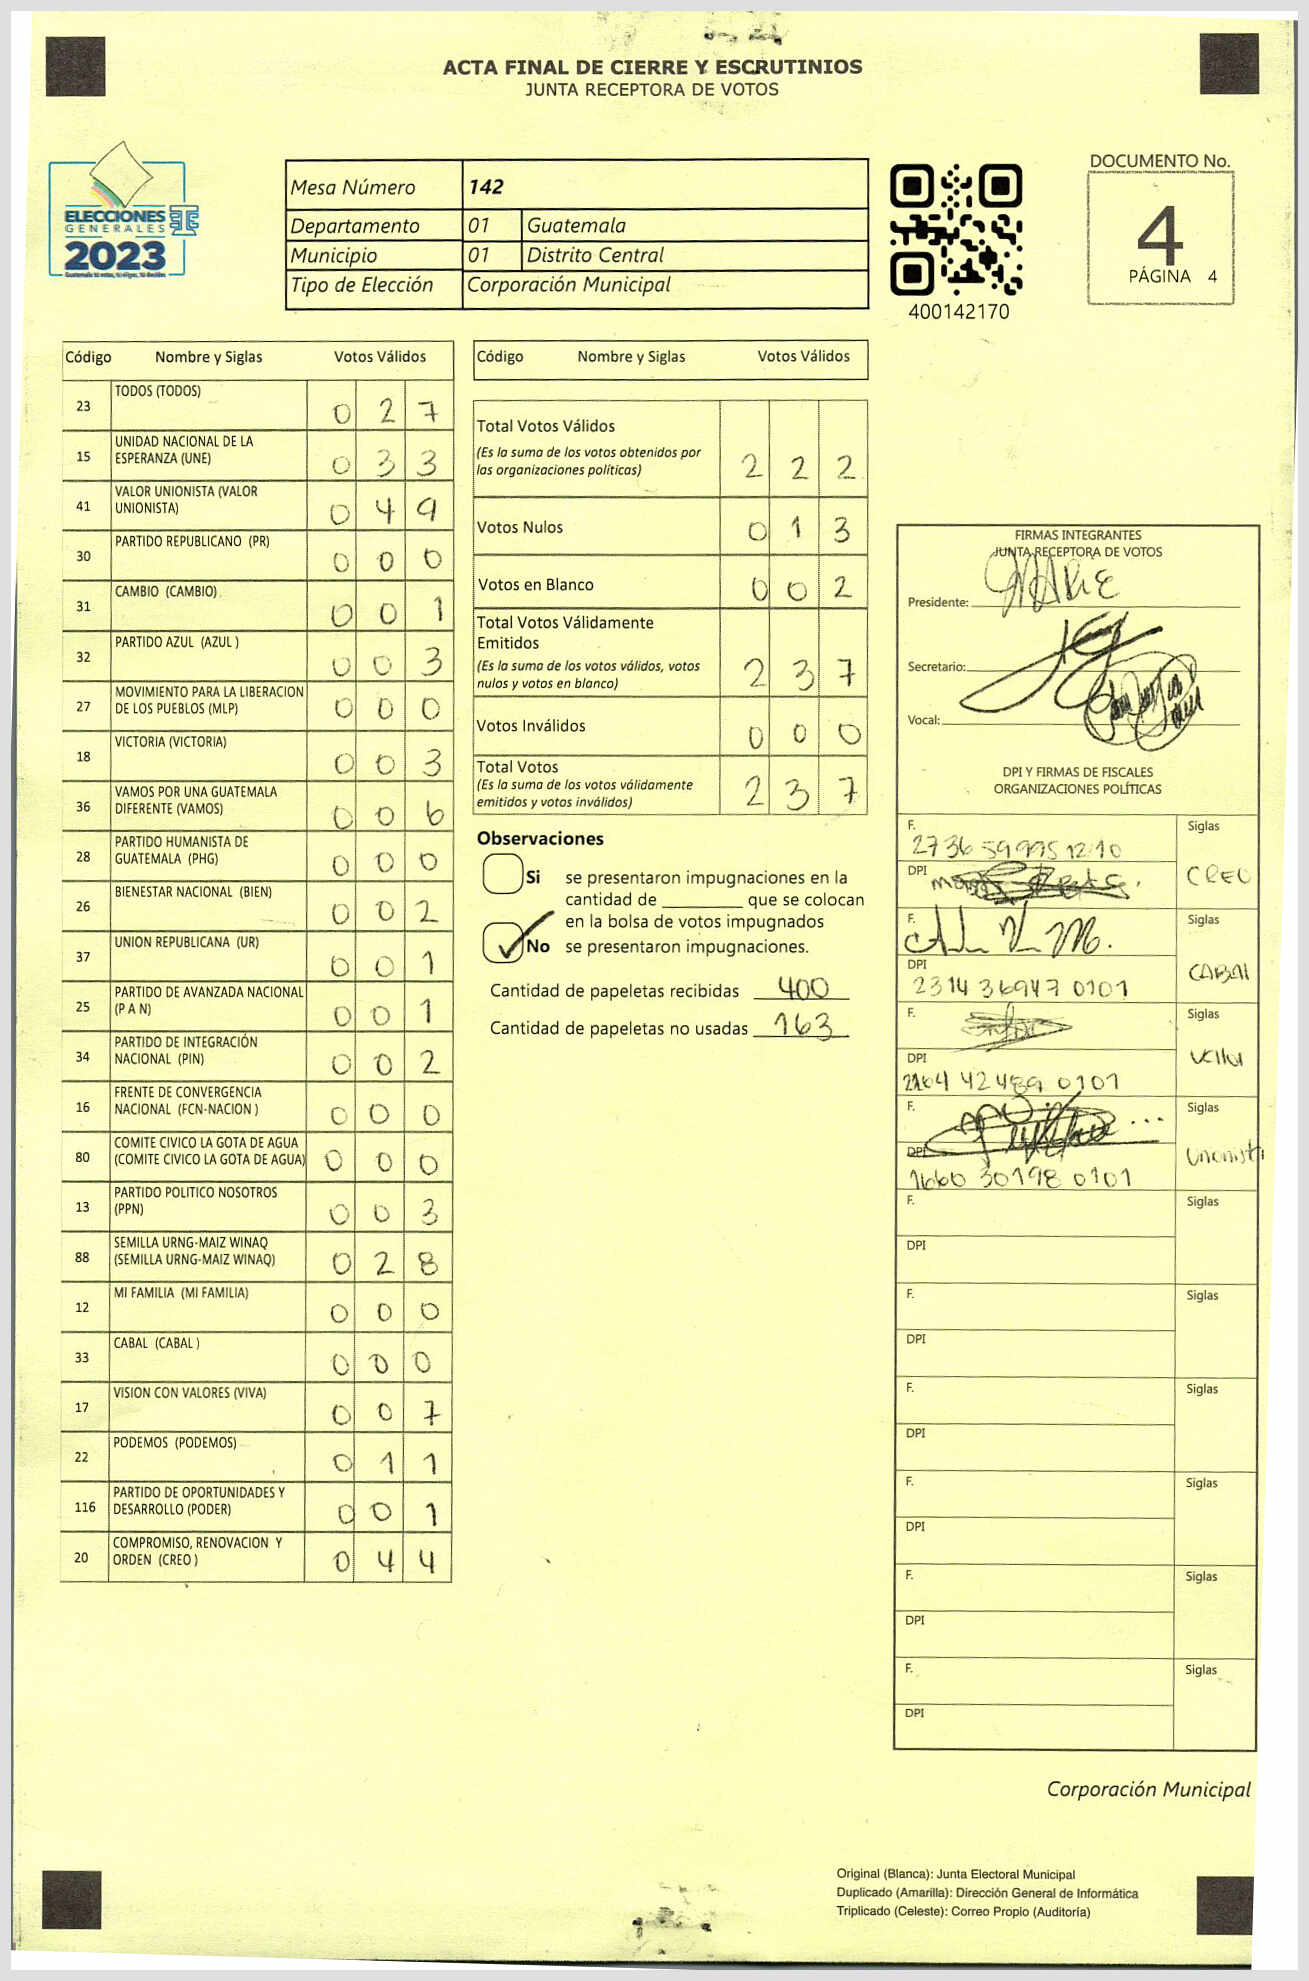 ACTA FINAL DE CIERRE Y ESCRUTINIOS
JUNTA RECEPTORA DE VOTOS
ELECCIONES
GENERALES
2023
Mesa Número 142
Departamento 01 Guatemala
Municipio 01 Distrito Central
Tipo de Elección Corporación Municipal
400142170
DOCUMENTO No.
4
PÁGINA 4
Código Nombre y Siglas Votos Válidos
23 TODOS (TODOS) 0 2 7
15 UNIDAD NACIONAL DE LA
ESPERANZA (UNE) 0 3 3
41 VALOR UNIONISTA (VALOR
UNIONISTA) 0 4 9
30 PARTIDO REPUBLICANO (PR) 0 0 0
31 CAMBIO (CAMBIO) 0 0 1
32 PARTIDO AZUL (AZUL ) 0 0 3
27 MOVIMIENTO PARA LA LIBERACION
DE LOS PUEBLOS (MLP) 0 0 0
18 VICTORIA (VICTORIA) 0 0 3
36 VAMOS POR UNA GUATEMALA
DIFERENTE (VAMOS) 0 0 6
28 PARTIDO HUMANISTA DE
GUATEMALA (PHG) 0 0 0
26 BIENESTAR NACIONAL (BIEN) 0 0 2
37 UNION REPUBLICANA (UR) 0 0 1
25 PARTIDO DE AVANZADA NACIONAL
(P A N) 0 0 1
34 PARTIDO DE INTEGRACIÓN
NACIONAL (PIN) 0 0 2
16 FRENTE DE CONVERGENCIA
NACIONAL (FCN-NACION ) 0 0 0
80 COMITE CIVICO LA GOTA DE AGUA
(COMITE CIVICO LA GOTA DE AGUA) 0 0 0
13 PARTIDO POLITICO NOSOTROS
(PPN) 0 0 3
88 SEMILLA URNG-MAIZ WINAQ
(SEMILLA URNG-MAIZ WINAQ) 0 2 8
12 MI FAMILIA (MI FAMILIA) 0 0 0
33 CABAL (CABAL ) 0 0 0
17 VISION CON VALORES (VIVA) 0 0 7
22 PODEMOS (PODEMOS) 0 1 1
116 PARTIDO DE OPORTUNIDADES Y
DESARROLLO (PODER) 0 0 1
20 COMPROMISO, RENOVACION Y
ORDEN (CREO ) 0 4 4
Código Nombre y Siglas Votos Válidos
Total Votos Válidos
(Es la suma de los votos obtenidos por
las organizaciones políticas) 2 2 2
Votos Nulos 0 1 3
Votos en Blanco 0 0 2
Total Votos Válidamente
Emitidos
(Es la suma de los votos válidos, votos
nulos y votos en blanco) 2 3 7
Votos Inválidos 0 0 0
Total Votos
(Es la suma de los votos válidamente
emitidos y votos inválidos) 2 3 7
Observaciones
Si se presentaron impugnaciones en la
cantidad de ________ que se colocan
en la bolsa de votos impugnados
No se presentaron impugnaciones.
Cantidad de papeletas recibidas 400
Cantidad de papeletas no usadas 163
FIRMAS INTEGRANTES
JUNTA RECEPTORA DE VOTOS
Presidente:
Secretario:
Vocal:
DPI Y FIRMAS DE FISCALES
ORGANIZACIONES POLÍTICAS
F. Siglas
2736 59995 1210
DPI CREO
F. Siglas
DPI CABAL
2314 36947 0101
F. Siglas
DPI
2164 42489 0101
F. Siglas
DPI Unionista
1660 30198 0101
F. Siglas
DPI
F. Siglas
DPI
F. Siglas
DPI
F. Siglas
DPI
F. Siglas
DPI
F. Siglas
DPI
Corporación Municipal
Original (Blanca): Junta Electoral Municipal
Duplicado (Amarilla): Dirección General de Informática
Triplicado (Celeste): Correo Propio (Auditoría)